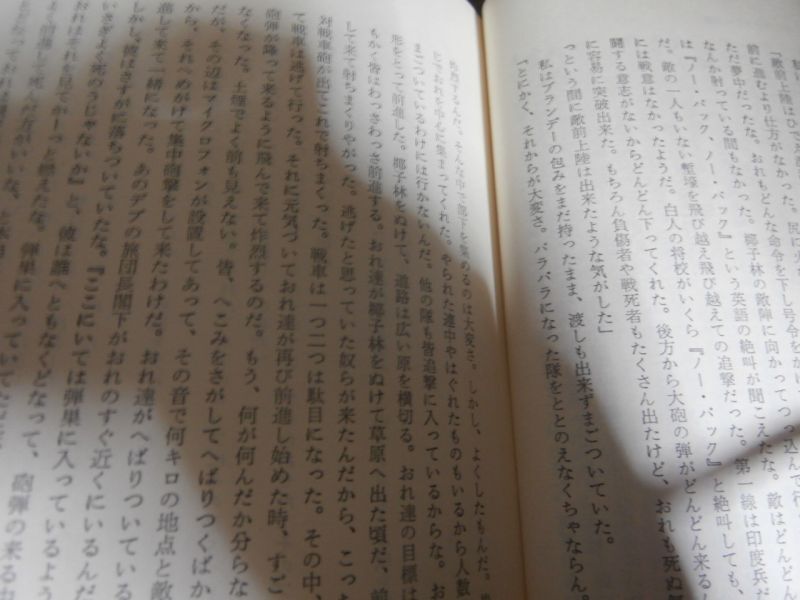 「敵前上陸は
前に進むより仕方がない。おれもどんな命令を下し号令をか
ただ夢中だったな。椰子林の敵陣に向かってつっ込んで行
なんか射っている間もなかった。敵はどんどん
は『ノー・バック、ノー・バック』という英語の絶叫が聞こえたな。第一線は印度兵だ
だ。敵の一人もいない塹壕を飛び越え飛び越えての追撃だった。
には戦意はなかったようだ。白人の将校がいくら『ノー・バック』と絶叫しても、
闘する意志がないからどんどん下ってくれた。後方から大砲の弾がどんどん来る
に容易に突破出来た。もちろん負傷者や戦死者もたくさん出たけど、おれも死ぬ
っという間に敵前上陸は出来たような気がした」
私はブランデーの包みをまだ持ったまま、渡しも出来ずまごついていた。
「とにかく、それからが大変さ。バラバラになった隊をととのえなくちゃならん。
炸烈するんだ。そんな中で部下を集めるのは大変さ。しかし、よくしたもんだ。
おれを中心に集まってくれた。やられた連中やはぐれたものもいるから人数
まごついているわけには行かないんだ。他の隊も皆追撃に入っているからな。お
形をとって前進した。椰子林をぬけて、道路は広い原を横切る。おれ達の目標は
もかく皆はわっさわっさ前進する。おれ達が椰子林をぬけて草原へ出た頃だ、前
して来て射ちまくりやがった。逃げたと思っていた奴らが来たんだから、こっち
対戦車砲が出てこれで射ちまくった。戦車は一つ二つは駄目になった。その中、
て戦車は逃げて行った。それに元気づいておれ達が再び前進し始めた時、すご
砲弾が降って来るように飛んで来て炸烈するのだ。もう、何が何んだか分らな
なくなった。土煙でよく前も見えない。皆、へこみをさがしてへばりつくばか
だが、その辺はマイクロフォンが設置してあって、その音で何キロの地点と敵
から、それへめがけて集中砲撃をして来たわけだ。おれ達がへばりついている
進して来て一緒になった。あのデブの旅団長閣下がおれのすぐ近くにいるんだ
しかし、彼はさすがに落ちついていたな。『ここにいては弾巣に入っているよう
いさぎよく死のうじゃないか』と、彼は誰へともなくどなって、砲弾の来る中
おれはそれを見てかーっと燃えたな。弾巣に入っていて
よく前進して死んだ方がいいな、と